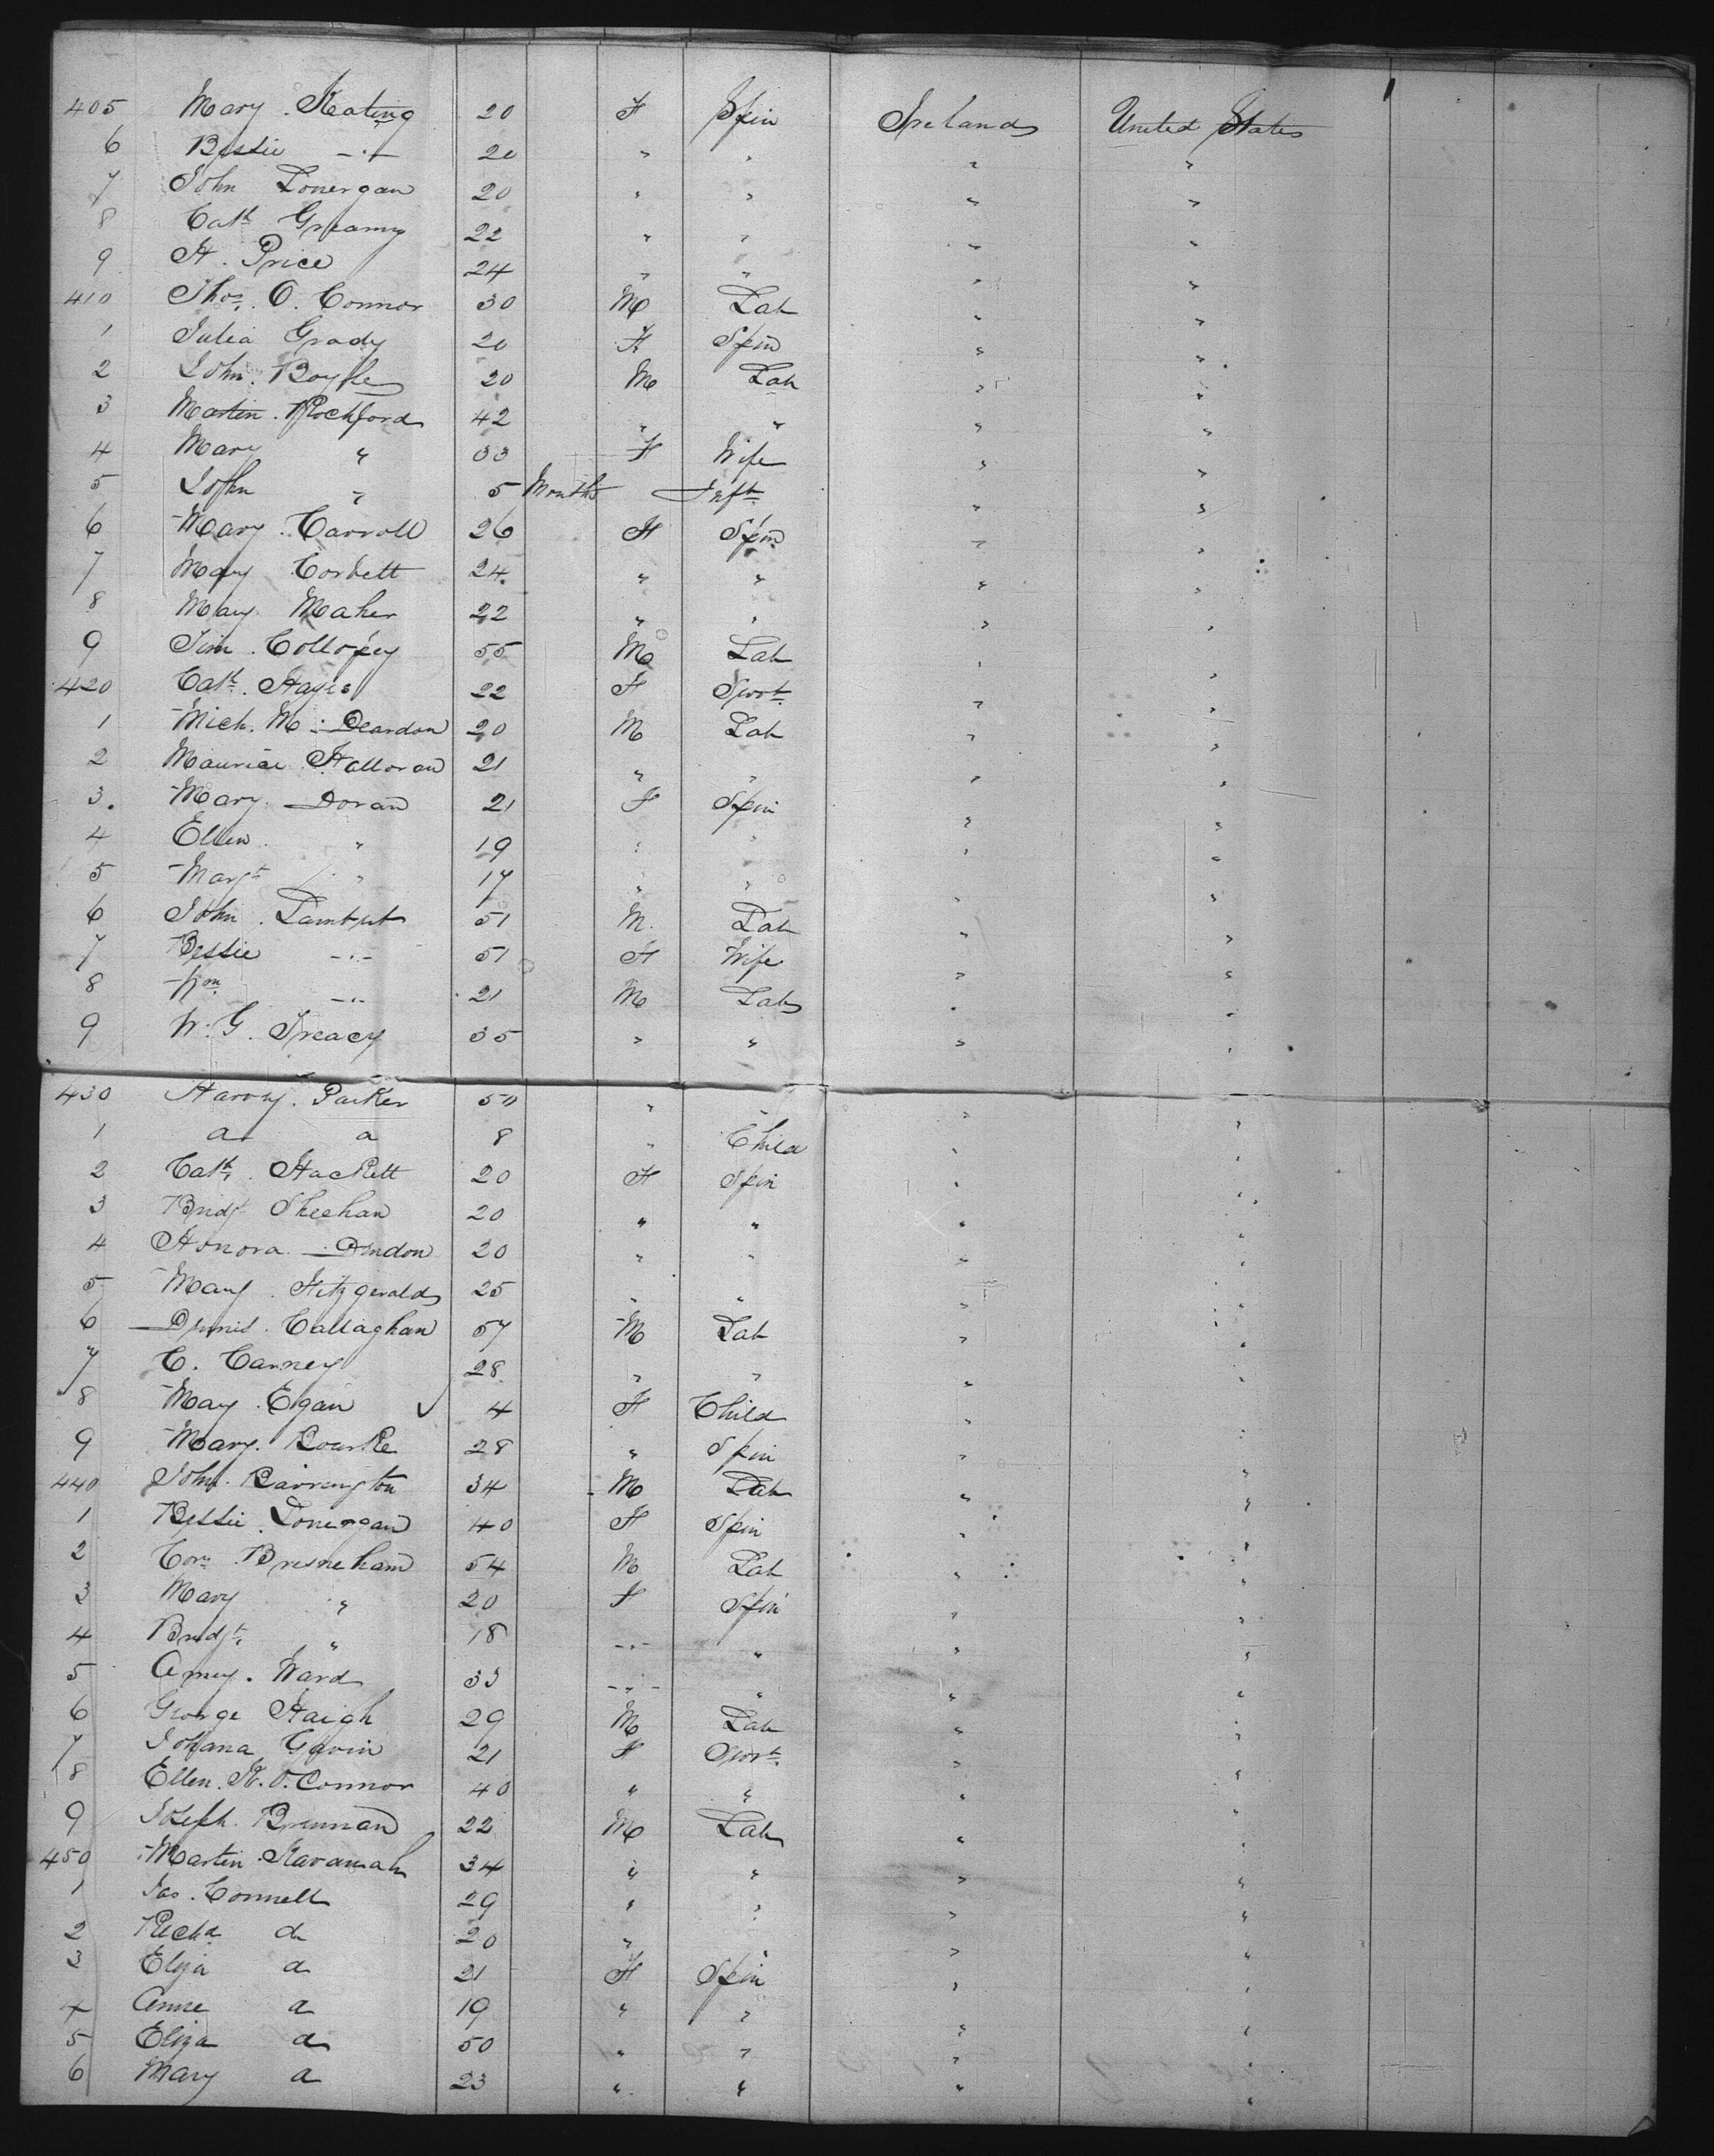 405 Mary Keating 20 F Spin Ireland United States
6 Bessie -"- 20 " " " "
7 John Lonergan 20 " " " "
8 Cath Greamy 22 " " " "
9 H. Price 24 " " " "
410 Thos. O. Connor 30 M Lab " "
1 Julia Grady 20 F Spin " "
2 John Boyle 20 M Lab " "
3 Martin Rochford 42 " " " "
4 Mary " 33 F Wife " "
5 John " 5 Months Inft " "
6 Mary Carroll 26 F Spin " "
7 Mary Corbett 24 " " " "
8 Mary Maher 22 " " " "
9 Jim Collopey 55 M Lab " "
420 Cath. Hayes 22 F Servt " "
1 Mich. M. Deardon 20 M Lab " "
2 Maurice Halloran 21 " " " "
3 Mary Doran 21 F Spin " "
4 Ellen " 19 " " " "
5 Margt " 17 " " " "
6 John Lambert 51 M Lab " "
7 Bessie -"- 51 F Wife " "
8 Wm -"- 21 M Lab " "
9 W. G. Treacy 35 " " " "
430 Harry Parker 50 " " " "
1 d d 8 " Child " "
2 Cath. Hackett 20 F Spin " "
3 Bridgt Sheehan 20 " " " "
4 Honora 20 " " " "
5 Mary Fitzgerald 25 " " " "
6 Dennis Callaghan 57 M Lab " "
7 C. Carney 28 " " " "
8 May Egan 4 F Child " "
9 Mary Bourke 28 " Spin " "
440 John Barrington 34 M Lab " "
1 Bessie Lonergan 40 F Spin " "
2 Cors Bresneham 54 M Lab " "
3 Mary " 20 F Spin " "
4 Bridgt. " 18 -"- " " "
5 Amey Ward 33 -"- " " "
6 George Haigh 29 M Lab " "
7 Johana Gavin 21 F Servt " "
8 Ellen K. O. Connor 40 " " " "
9 Joseph Brennan 22 M Lab " "
450 Martin Kavanah 34 " " " "
1 Jas. Connell 29 " " " "
2 Richd do 20 " " " "
3 Eliza d 21 F Spin " "
4 Anne d 19 " " " "
5 Eliza d 50 " " " "
6 Mary d 23 " " " "